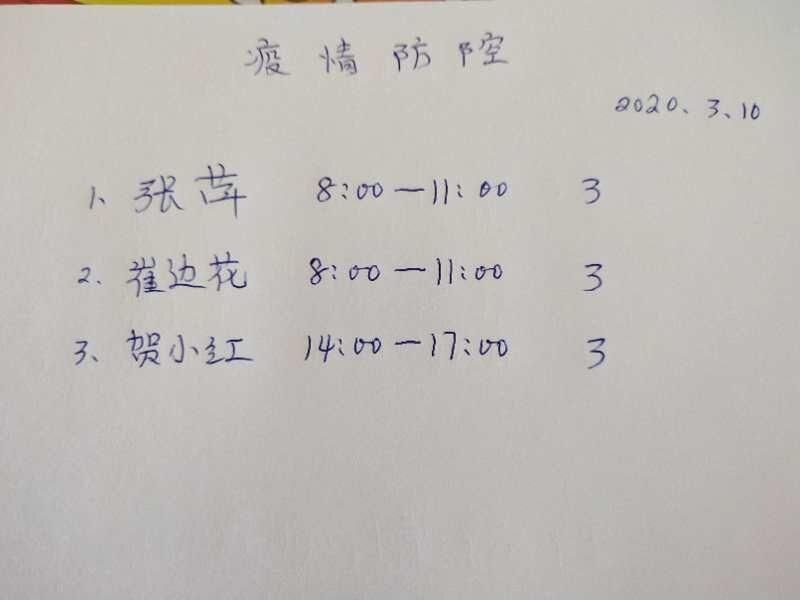 疫情防控
2020.3.10
1、张萍 8:00—11:00 3
2、崔边花 8:00—11:00 3
3、贺小红 14:00—17:00 3